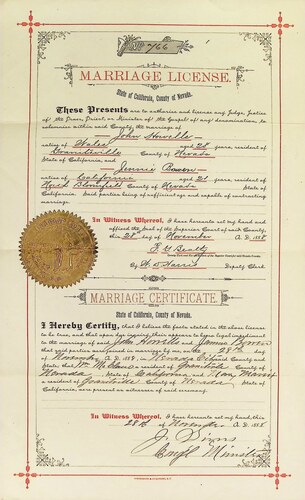 No 766
MARRIAGE LICENSE.
State of California, County of Nevada.
These Presents are to authorize and license any Judge, Justice
of the Peace, Priest, or Minister of the Gospel of any denomination, to
solemnize within said County the marriage of
John Howells
native of Wales aged 28 years, resident of
Graniteville County of Nevada
State of California, and Jennie Bowen
native of California aged 21 years, resident of
North Bloomfield County of Nevada State of
California. Said parties being of sufficient age and capable of contracting
marriage.
In Witness Whereof, I have hereunto set my hand and
affixed the Seal of the Superior Court of said County, this
28 day of November A.D. 1888
F. G. Beatty
By W. D. Harris Deputy Clerk.
MARRIAGE CERTIFICATE.
State of California, County of Nevada.
I Hereby Certify, that I believe the facts stated in the above license
to be true, and that upon due inquiry there appears to be no legal impediment
to the marriage of said John Howells and Jennie Bowen
that said parties were joined in marriage by me, on the 28th day
of November A.D. 1888, in Nevada City
State; that Wm McLean a resident of Graniteville County of
Nevada, State of California, and
a resident of Graniteville, County of Nevada, State of
California, are present as witnesses of said ceremony.
In Witness Whereof, I have hereunto set my hand, this
28th of November A.D. 1888
J. Sims
Congl Minister